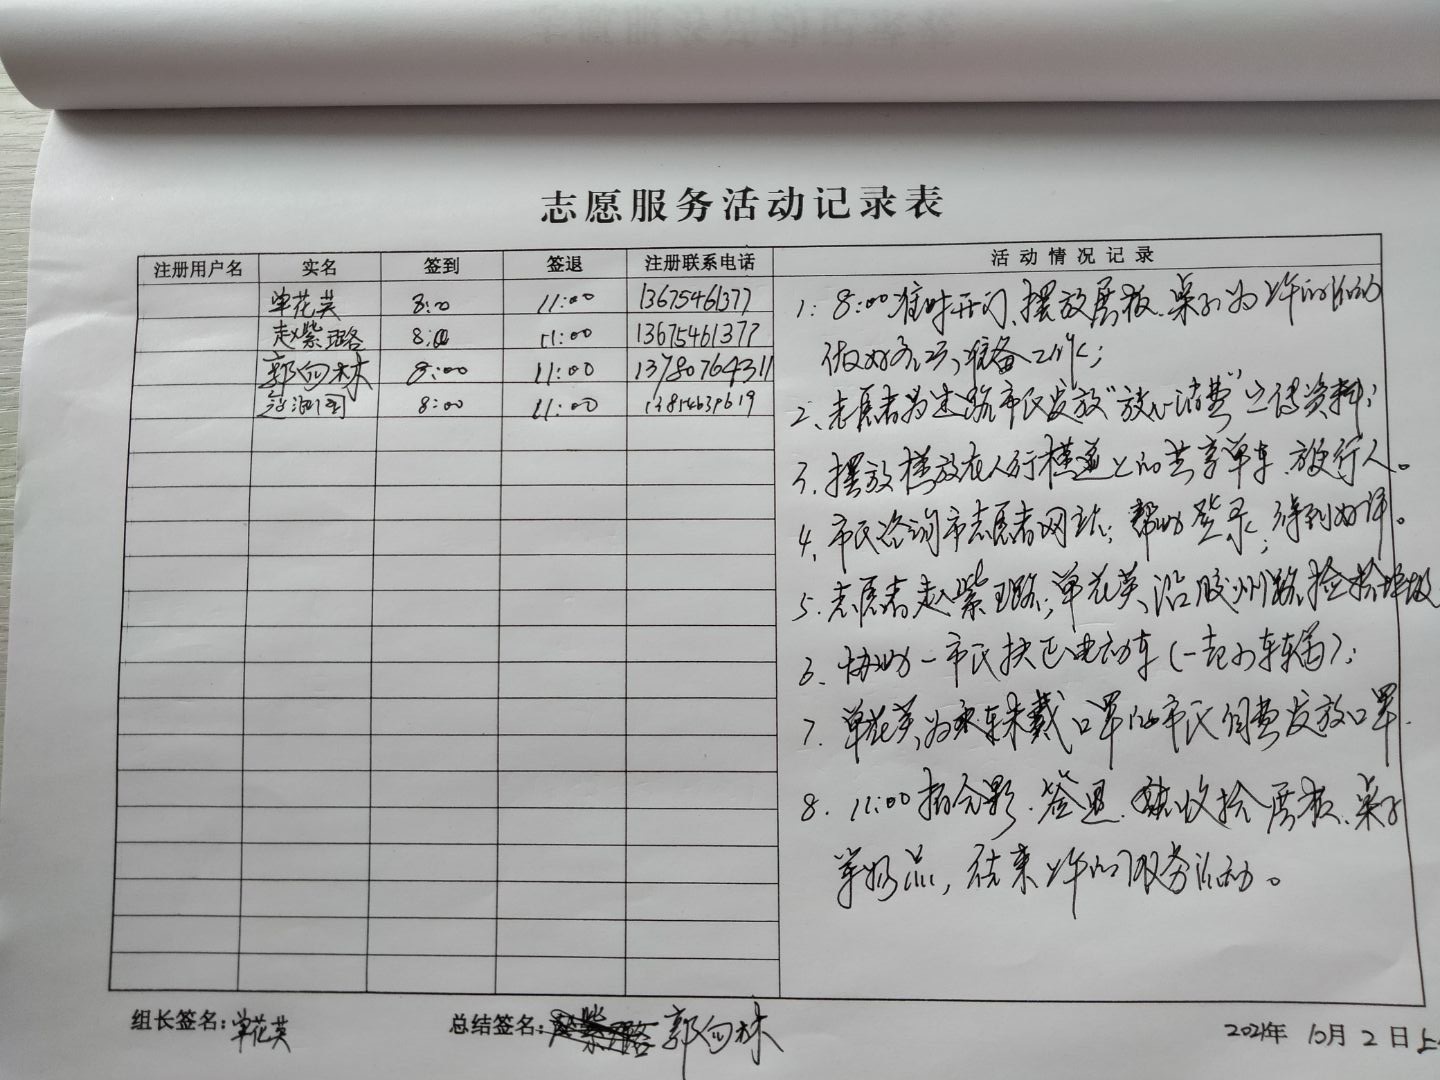 志愿服务活动记录表
注册用户名 实名 签到 签退 注册联系电话 活动情况记录
单花英 8:00 11:00 13675461377
赵紫璐 8:00 11:00 13675461377
郭向林 8:00 11:00 13780764311
8:00 11:00 13854639619
1: 8:00准时开门、摆放展板、桌子为上午的活动
做好各项准备工作;
2、志愿者为过路市民发放“放心消费”宣传资料;
3、摆放横放在人行横道上的共享单车、放行人。
4、市民咨询市志愿者网站;帮助登录;得到好评。
5、志愿者赵紫璐;单花英、沿胶州路捡拾垃圾
6、协助一市民扶正电动车(一起的车辆);
7、单花英为未戴口罩的市民免费发放口罩.
8、11:00拍合影、签退、收拾展板、桌子
等物品,结束上午的服务活动。
组长签名:单花英 总结签名:郭向林 2021年10月2日上